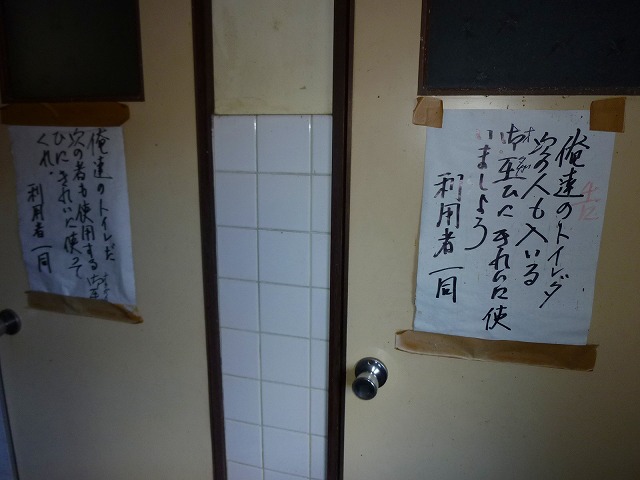 俺達のトイレダ
次の人も入いる
御互ひにきれいに使
いましよう
利用者一同
俺達のトイレだ
次の者も使用する御互
ひにきれいに使って
くれ.
利用者一同